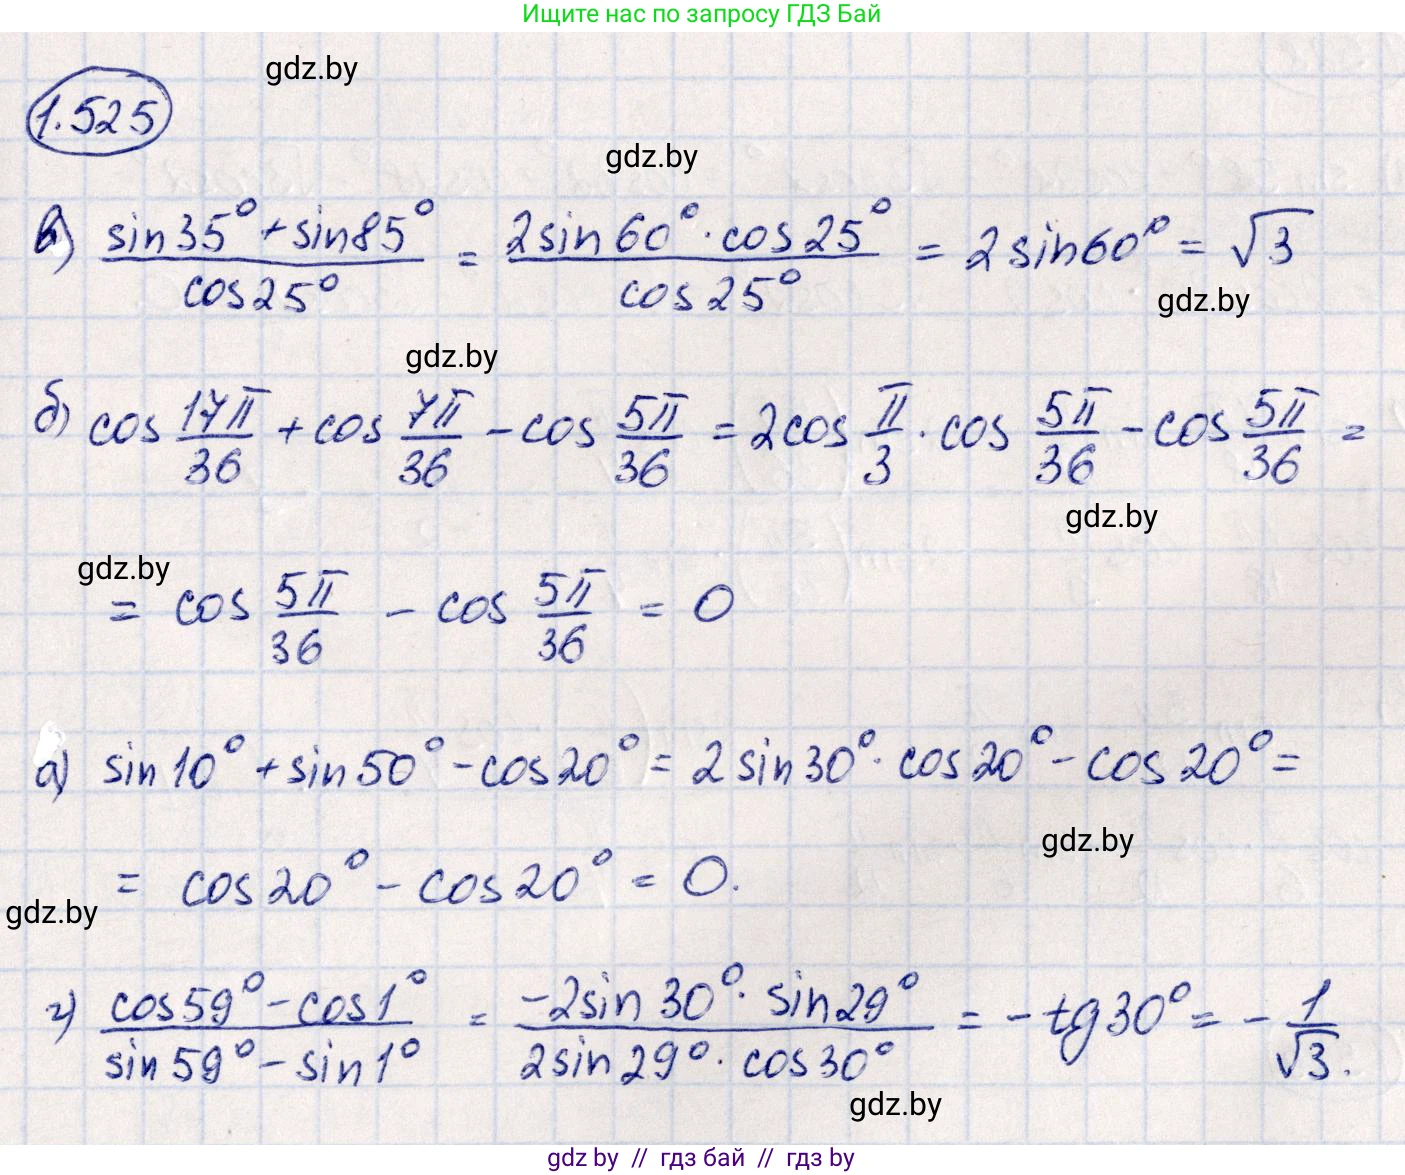 Ищите нас по запросу ГДЗ Бай
gdz.by
1.525
gdz.by
в) (sin35° + sin85°)/cos25° = (2sin60° · cos25°)/cos25° = 2sin60° = √3
gdz.by
gdz.by
б) cos 17π/36 + cos 7π/36 - cos 5π/36 = 2cos π/3 · cos 5π/36 - cos 5π/36 =
gdz.by
gdz.by
= cos 5π/36 - cos 5π/36 = 0
а) sin10° + sin50° - cos20° = 2sin30° · cos20° - cos20° =
gdz.by
= cos20° - cos20° = 0.
gdz.by
г) (cos59° - cos1°)/(sin59° - sin1°) = (-2sin30° · sin29°)/(2sin29° · cos30°) = -tg30° = -1/√3.
gdz.by
gdz by // гдз бай // гдз by